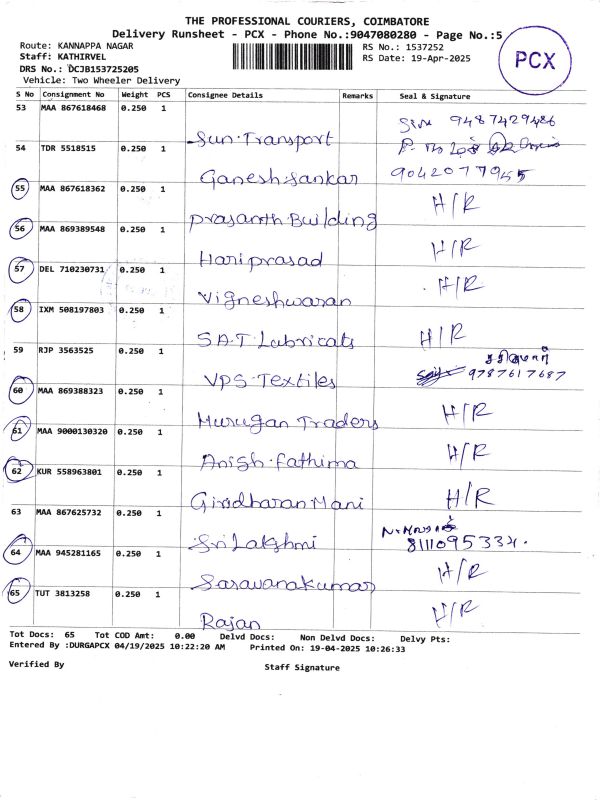 THE PROFESSIONAL COURIERS, COIMBATORE
Delivery Runsheet - PCX - Phone No.:9047080280 - Page No.:5
Route: KANNAPPA NAGAR
Staff: KATHIRVEL
DRS No.: DCJB153725205
Vehicle: Two Wheeler Delivery
RS No.: 1537252
RS Date: 19-Apr-2025
PCX
S No Consignment No Weight PCS Consignee Details Remarks Seal & Signature
53 MAA 867618468 0.250 1
Sun Transport 9487429486
54 TDR 5518515 0.250 1
Ganesh Sankar 9042077955
55 MAA 867618362 0.250 1
Prasanth Building H/R
56 MAA 869389548 0.250 1
Hari prasad H/R
57 DEL 710230731 0.250 1
Vigneshwaran H/R
58 IXM 508197803 0.250 1
S.A.T Lubricats H/R
59 RJP 3563525 0.250 1
VPS Textiles 9787617687
60 MAA 869388323 0.250 1
Murugan Traders H/R
61 MAA 9000130320 0.250 1
Anish fathima H/R
62 KUR 558963801 0.250 1
Giridharan Mani H/R
63 MAA 867625732 0.250 1
Sri Lakshmi 8111095334.
64 MAA 945281165 0.250 1
Saravanakumar H/R
65 TUT 3813258 0.250 1
Rajan H/R
Tot Docs: 65 Tot COD Amt: 0.00 Delvd Docs: Non Delvd Docs: Delvy Pts:
Entered By :DURGAPCX 04/19/2025 10:22:20 AM Printed On: 19-04-2025 10:26:33
Verified By Staff Signature